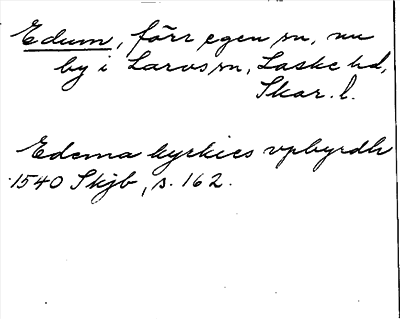 Edum, förr egen sn, nu
by i Larvs sn, Laske hd,
Skar. l.
Edema kyrkies vpbyrdh
1540 Skjb, s. 162.